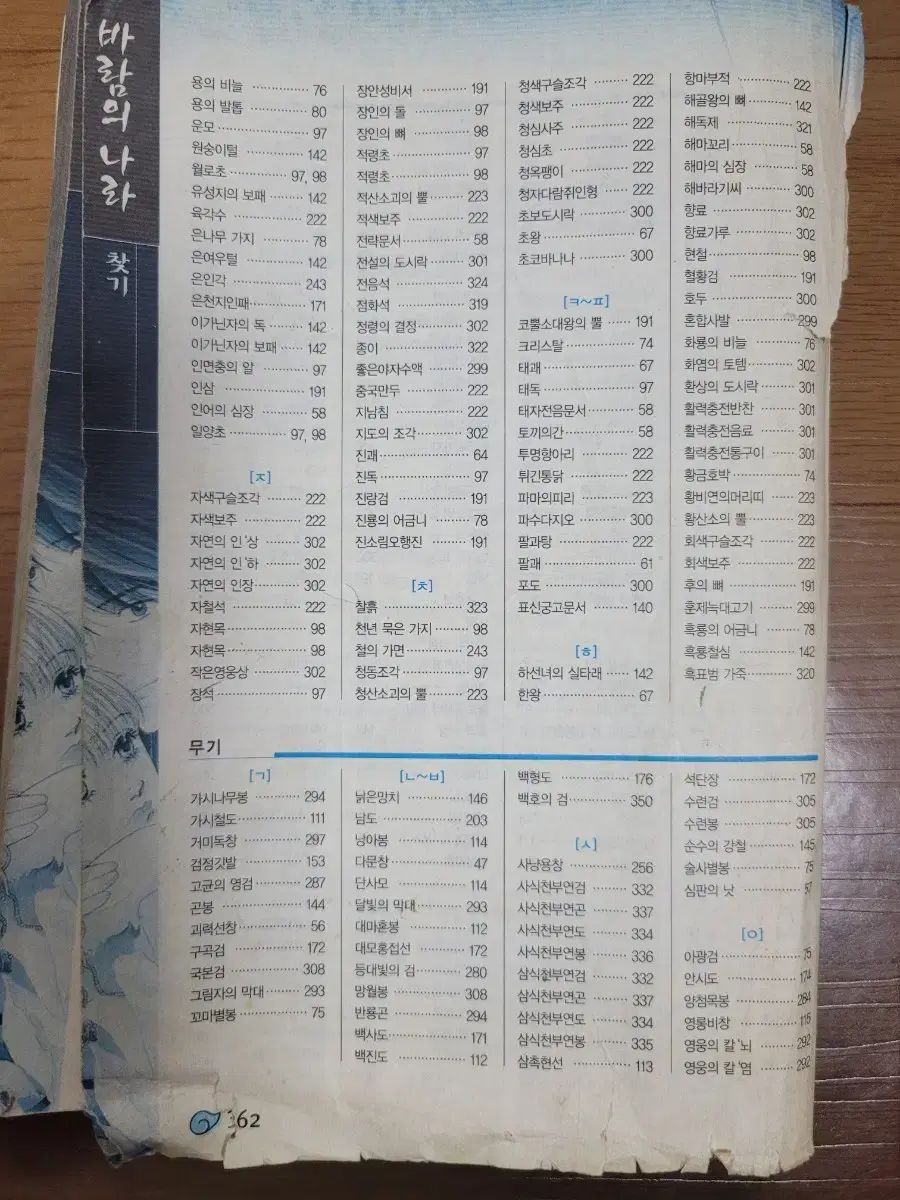 바람의 나라
찾기
용의 비늘 76
용의 발톱 80
운모 97
원숭이털 142
월로초 97, 98
유성지의 보패 142
육각수 222
은나무 가지 78
은여우털 142
은인각 243
은천지인패 171
이가닌자의 독 142
이가닌자의 보패 142
인면충의 알 97
인삼 191
인어의 심장 58
일양초 97, 98
[ㅈ]
자색구슬조각 222
자색보주 222
자연의 인'상 302
자연의 인'하 302
자연의 인장 302
자철석 222
자현목 98
자현목 98
작은영웅상 302
장석 97
장안성비서 191
장인의 돌 97
장인의 뼈 98
적령초 97
적령초 98
적산소괴의 뿔 223
적색보주 222
전략문서 58
전설의 도시락 301
전음석 324
점화석 319
정령의 결정 302
종이 322
좋은야자수액 299
중국만두 222
지남침 222
지도의 조각 302
진괘 64
진독 97
진랑검 191
진룡의 어금니 78
진소림오행진 191
[ㅊ]
찰흙 323
천년 묵은 가지 98
철의 가면 243
청동조각 97
청산소괴의 뿔 223
청색구슬조각 222
청색보주 222
청심사주 222
청심초 222
청옥팽이 222
청자다람쥐인형 222
초보도시락 300
초왕 67
초코바나나 300
[ㅋ~ㅍ]
코뿔소대왕의 뿔 191
크리스탈 74
태괘 67
태독 97
태자전음문서 58
토끼의간 58
투명항아리 222
튀긴통닭 222
파마의피리 223
파수다지오 300
팔과탕 222
팔괘 61
포도 300
표신궁고문서 140
[ㅎ]
하선녀의 실타래 142
한왕 67
항마부적 222
해골왕의 뼈 142
해독제 321
해마꼬리 58
해마의 심장 58
해바라기씨 300
향료 302
향료가루 302
현철 98
혈황검 191
호두 300
혼합사발 299
화룡의 비늘 76
화염의 토템 302
환상의 도시락 301
활력충전반찬 301
활력충전음료 301
활력충전통구이 301
황금호박 74
황비연의머리띠 223
황산소의 뿔 223
회색구슬조각 222
회색보주 222
후의 뼈 191
훈제늑대고기 299
흑룡의 어금니 78
흑룡철심 142
흑표범 가죽 320
무기
[ㄱ]
가시나무봉 294
가시철도 111
거미독창 297
검정깃발 153
고균의 영검 287
곤봉 144
괴력선창 56
구곡검 172
국본검 308
그림자의 막대 293
꼬마별봉 75
[ㄴ~ㅂ]
낡은망치 146
남도 203
낭아봉 114
다문창 47
단사모 114
달빛의 막대 293
대마혼봉 112
대모홍접선 172
등대빛의 검 280
망월봉 308
반룡곤 294
백사도 171
백진도 112
백형도 176
백호의 검 350
[ㅅ]
사냥용창 256
사식천부연검 332
사식천부연곤 337
사식천부연도 334
사식천부연봉 336
삼식천부연검 332
삼식천부연곤 337
삼식천부연도 334
삼식천부연봉 335
삼촉현선 113
석단장 172
수련검 305
수련봉 305
순수의 강철 145
술사별봉 75
심판의 낫 57
[ㅇ]
아광검 75
안시도 174
양첨목봉 284
영룡비창 115
영웅의 칼'뇌 292
영웅의 칼'염 292
362